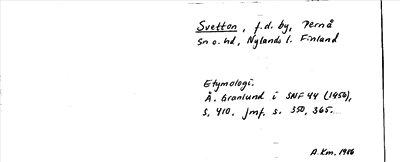 Svetton, f.d. by, Pernå
sn o. hd, Nylands l. Finland
Etymologi.
Å. Granlund i SNF 44 (1956),
s. 410. Jmf. s. 350, 365.
A.Km. 1986